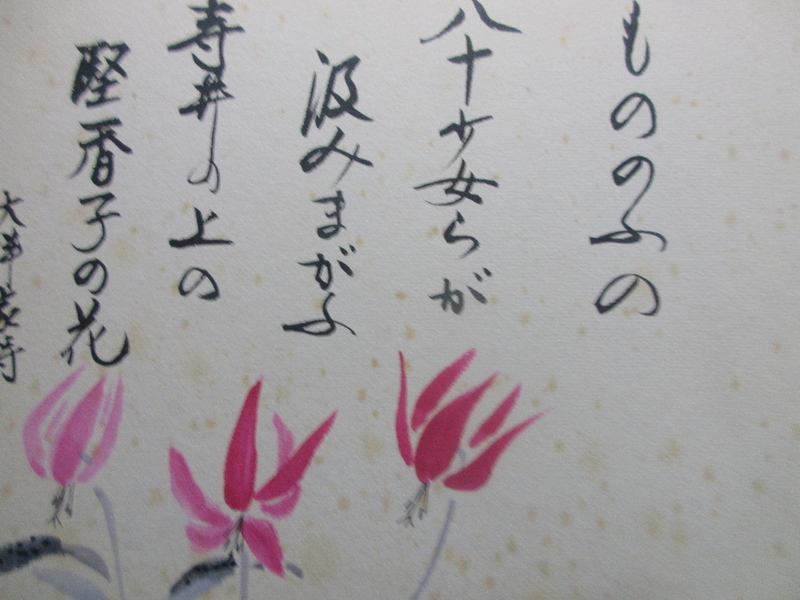 もののふの
八十少女らが
汲みまがふ
寺井の上の
堅香子の花
大伴家持